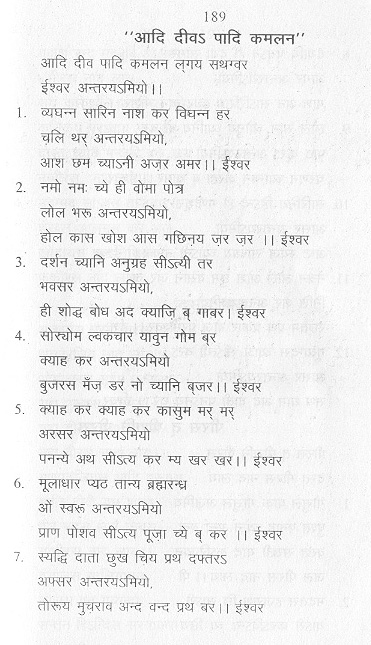 189
"आदि दीवऽ पादि कमलन"
आदि दीवऽ पादि कमलन ल्गय सथग्वर
ईश्वर अन्तरयऽमियो।।
1. व्यघन्न सारिन नाश कर विघन्न हर
च़लि थर् अन्तरयऽमियो,
आश छम च्याऽनी अज़र अमर।। ईश्वर
2. नमो नमः च्ये ही वोमा पोत्र
लोल भरू अन्तरयऽमियो,
होल कास खोश आस गछिऩय ज़र ज़र ।। ईश्वर
3. दर्शन च्यानि अनुग्रह सीऽत्यी तर
भवसर अन्तरयऽमियो,
ही शोद्ध बोध अद क्याज़ि ब् गाबर। ईश्वर
4. सोरुयोम ल्वकचार यावुन गोम ब्र
क्याह कर अन्तरयऽमियो
बुजरस मँज़ डर नो च्यानि ब्जर।। ईश्वर
5. क्याह कर क्याह कर कासुम मर् मर्
अरसर अन्तरयऽमियो
पनन्ये अथ सीऽत्य कर म्य खर खर।। ईश्वर
6. मूलाधार प्यठ तान्य ब्रह्मरन्ध्र
ओं स्वरू अन्तरयऽमियो
प्राण पोशव सीऽत्य पूजा च्ये ब् कर ।। ईश्वर
7. स्यद्धि दाता छुख चिय प्रथ दफ्तरऽ
अफ्सर अन्तरयऽमियो,
तोरूय मुचराव अन्द वन्द प्रथ बर।। ईश्वर